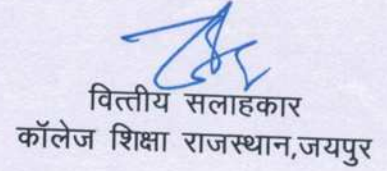 वित्तीय सलाहकार
कॉलेज शिक्षा राजस्थान,जयपुर